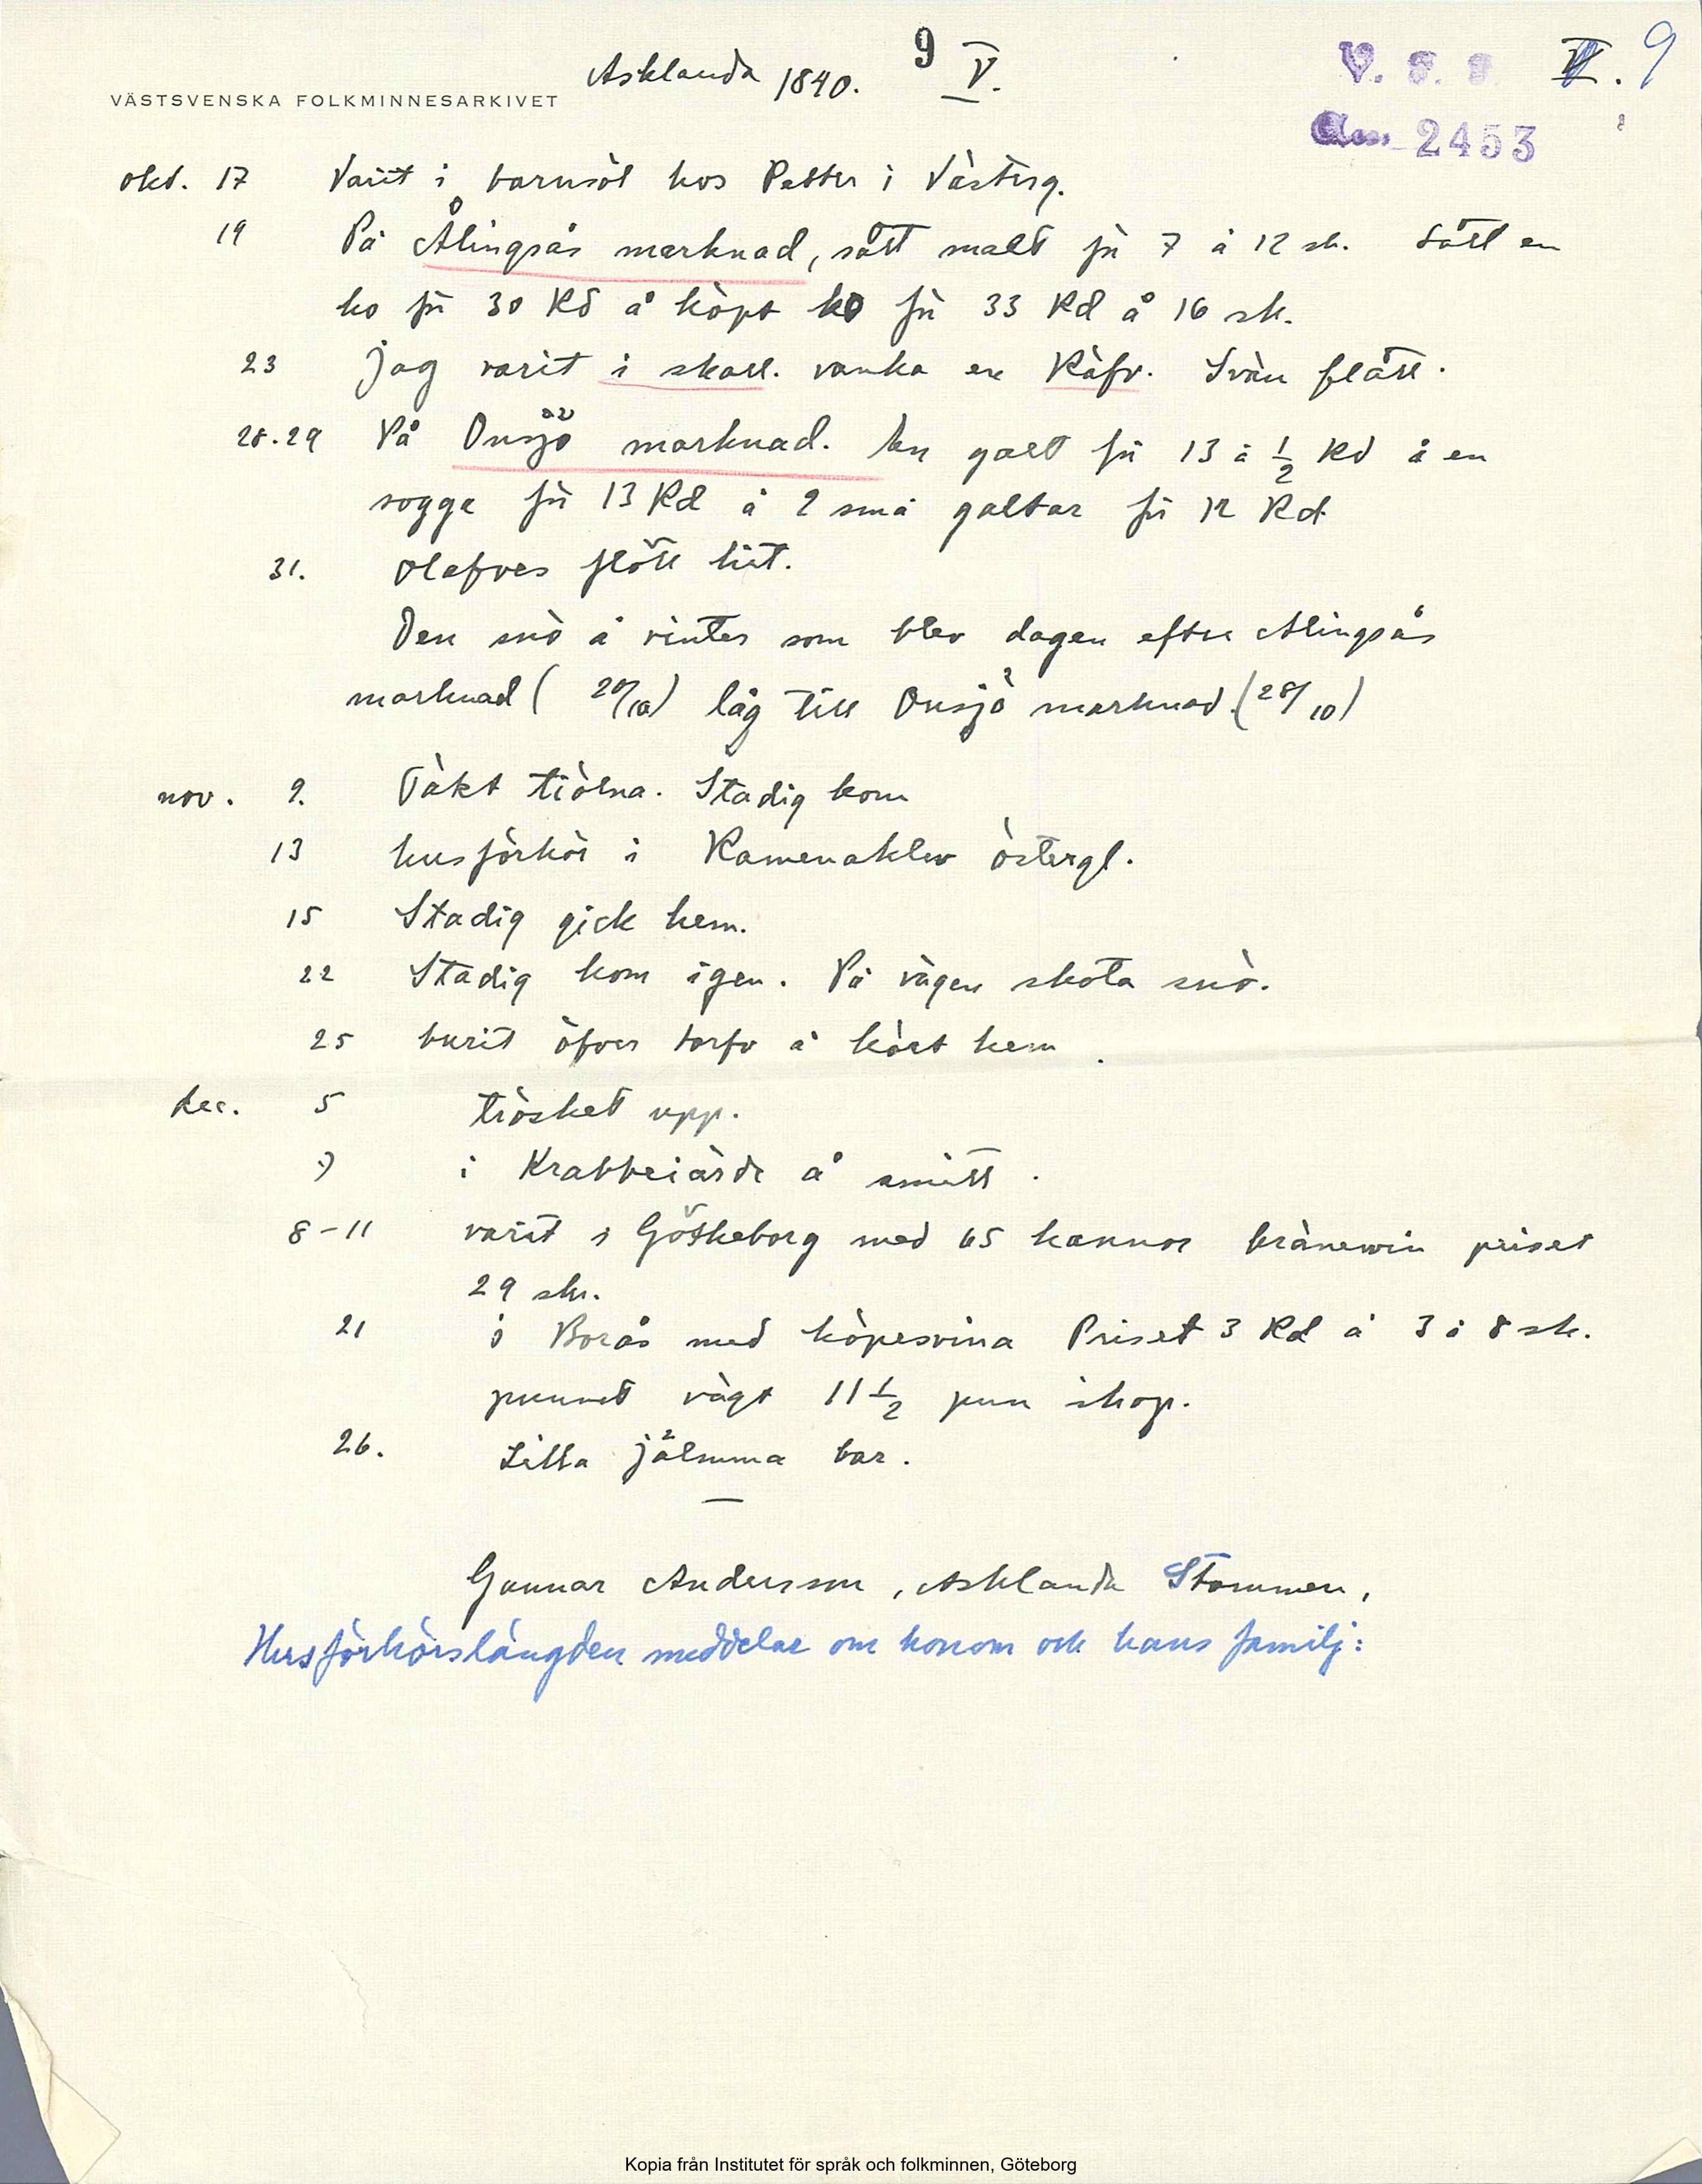 Asklanda 1840. 9 V.
V. F. F. V. 9
VÄSTSVENSKA FOLKMINNESARKIVET
Acc. 2453
okt. 17 Varit i barnsöl hos Petter i Västerg.
19 På Ålingsås marknad, sått malt fù 7 å 12 sk. Sått en
ko fù 30 Rd å köpt ko fù 33 Rd å 16 sk.
23 jag varit i skall. vanka en Räfv. Svän flått.
28.29 På Onsjö marknad. en galt fù 13 å 1/2 Rd å en
sogga fù 13 Rd å 2 små galtar fù 12 Rd
31. Olafves flött hit.
Den snö å vinter som blev dagen efter Alingsås
marknad (20/10) låg till Onsjö marknad. (28/10)
nov. 9. Täkt tiölna. Stadig kom
13 husförhör i Ramenaklev östergl.
15 Stadig gick hem.
22 Stadig kom igen. På vägen skota snö.
25 burit öfver torfv å kört hem.
dec. 5 trösket upp.
7 i Krabbeiärde å smitt.
8-11 varit i Götheborg med 65 kannor bränewin priset
29 sk.
21 i Borås med köpesvina Priset 3 Rd å 3 å 8 sk.
punnet vägt 11 1/2 pun ihop.
26. Lilla jälmma bar.
Gunnar Andersson, Asklanda Stommen,
Husförhörslängden meddelar om honom och hans familj:
Kopia från Institutet för språk och folkminnen, Göteborg